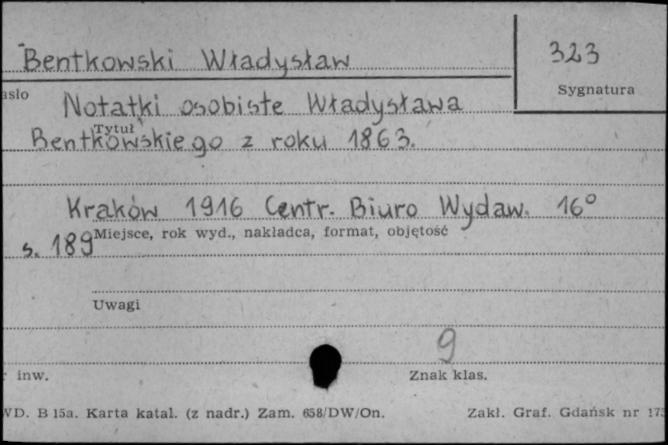 Bentkowski Władysław
323
Sygnatura
asło
Notatki osobiste Władysława
Tytuł
Bentkowskiego z roku 1863.
Kraków 1916 Centr. Biuro Wydaw. 16°
Miejsce, rok wyd., nakładca, format, objętość
s. 189
Uwagi
9
r inw.
Znak klas.
WD. B 15a. Karta katal. (z nadr.) Zam. 658/DW/On.
Zakł. Graf. Gdańsk nr 173